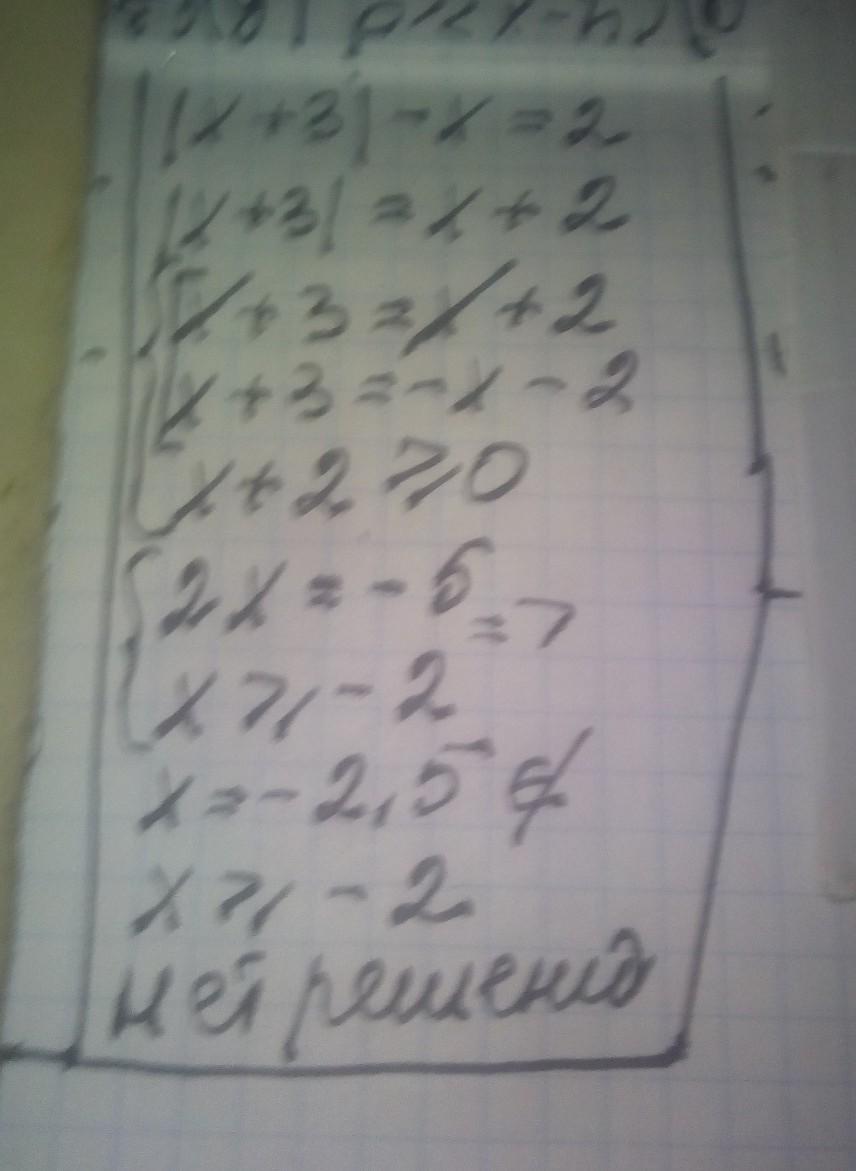 |x+3|-x=2
|x+3|=x+2
x+3=x+2
x+3=-x-2
x+2⩾0
2x=-5 =>
x⩾-2
x=-2,5 ∉
x⩾-2
нет решения